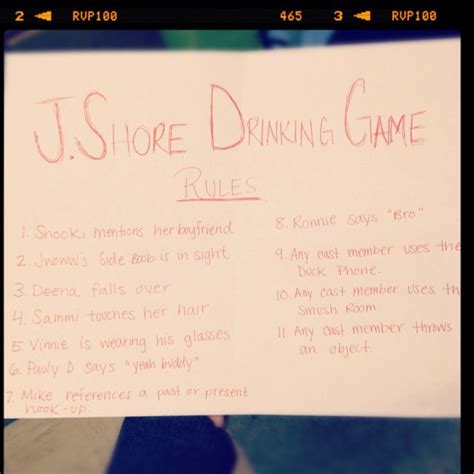 2 RVP100 465 3 RVP100
J. SHORE DRINKING GAME
RULES
1. Snooki mentions her boyfriend
2. Jwoww's Side Boob is in sight
3. Deena falls over
4. Sammi touches her hair
5. Vinnie is wearing his glasses
6. Pauly D says "yeah buddy"
7. Mike references a past or present
hook-up.
8. Ronnie says "Bro"
9. Any cast member uses the
Duck Phone.
10. Any cast member uses th
Smush Room
11. Any cast member throws
an object.